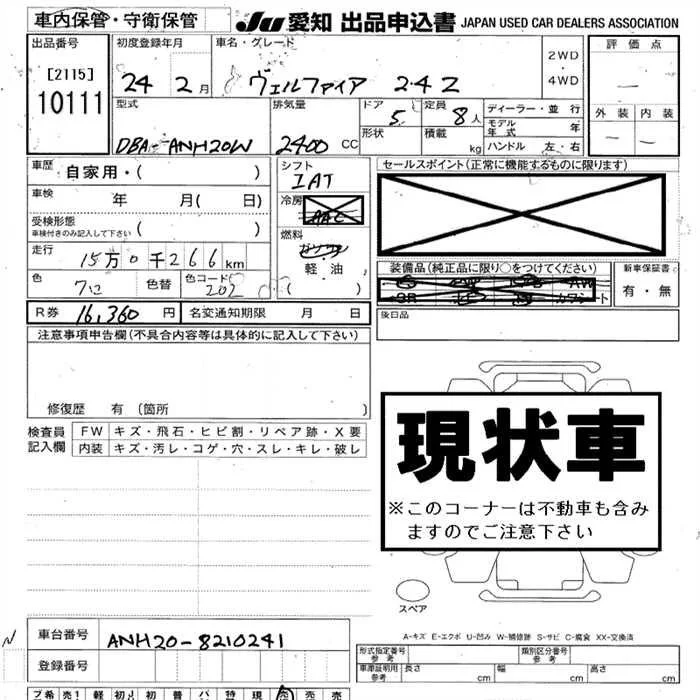 車内保管・守衛保管
JU 愛知 出品申込書 JAPAN USED CAR DEALERS ASSOCIATION
出品番号 初度登録年月 車名・グレード 評価点
[2115]
10111
24 2月 ヴェルファイア 2.4 Z
2WD
・
4WD
外装 内装
型式 排気量 ドア 定員 ディーラー・並行
DBA-ANH20W 2400 CC 5 8人
形状 積載 kg
モデル年式 年
ハンドル 左・右
車歴 自家用・( )
シフト IAT
セールスポイント(正常に機能するものに限ります)
車検 年 月( 日)
冷房 AAC
受検形態
車検付きのみ記入して下さい
( )
燃料
軽・油
( )
走行 15万0千266km
装備品(純正品に限り○をつけてください)
新車保証書
有・無
色 色替 色コード
202
後日品
R券 16,360円 名変通知期限 月 日
注意事項申告欄(不具合内容等は具体的に記入して下さい)
修復歴 有(箇所 )
検査員
記入欄
FW キズ・飛石・ヒビ割・リペア跡・X要
内装 キズ・汚レ・コゲ・穴・スレ・キレ・破レ
現状車
※このコーナーは不動車も含み
ますのでご注意下さい
スペア
A-キズ E-エクボ U-凹み W-補修跡 S-サビ C-腐食 XX-交換済
車台番号 ANH20-8210241
登録番号
形式指定番号
参考
類別区分番号
参考
車庫証明用
参考
長さ cm 幅 cm 高さ cm